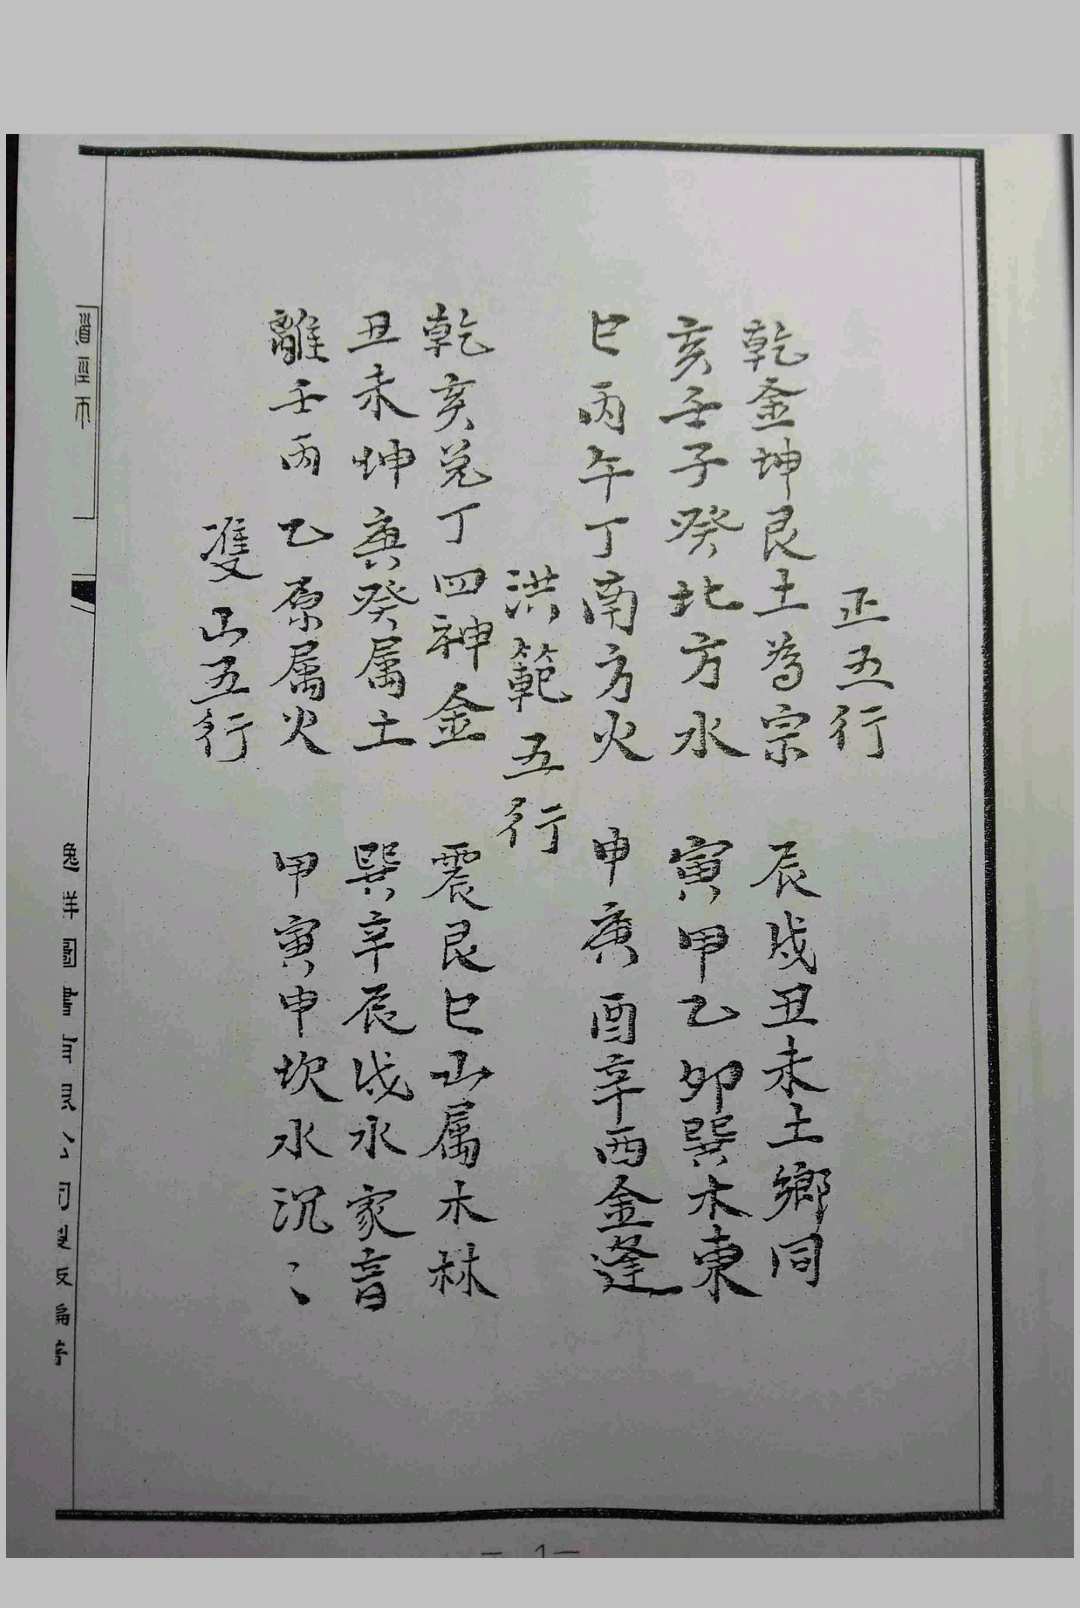 正五行
乾金坤艮土為宗 辰戌丑未土鄉同
亥壬子癸北方水 寅甲乙卯巽木東
巳丙午丁南方火 申庚酉辛西金逢
洪範五行
乾亥兌丁四神金 震艮巳山属木林
丑未坤庚癸属土 巽辛辰戌水家音
離壬丙乙原属火 甲寅申坎水沉〻
雙山五行
逸群圖書有限公司製版編著
— 1 —